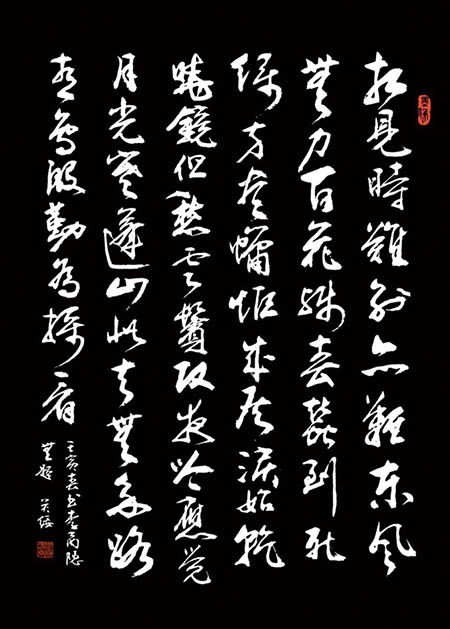 相見時難別亦難東風
無力百花殘春蠶到死
絲方盡蠟炬成灰淚始乾
曉鏡但愁雲鬢改夜吟應覺
月光寒蓬山此去無多路
青鳥殷勤為探看
春书李商隐
無題